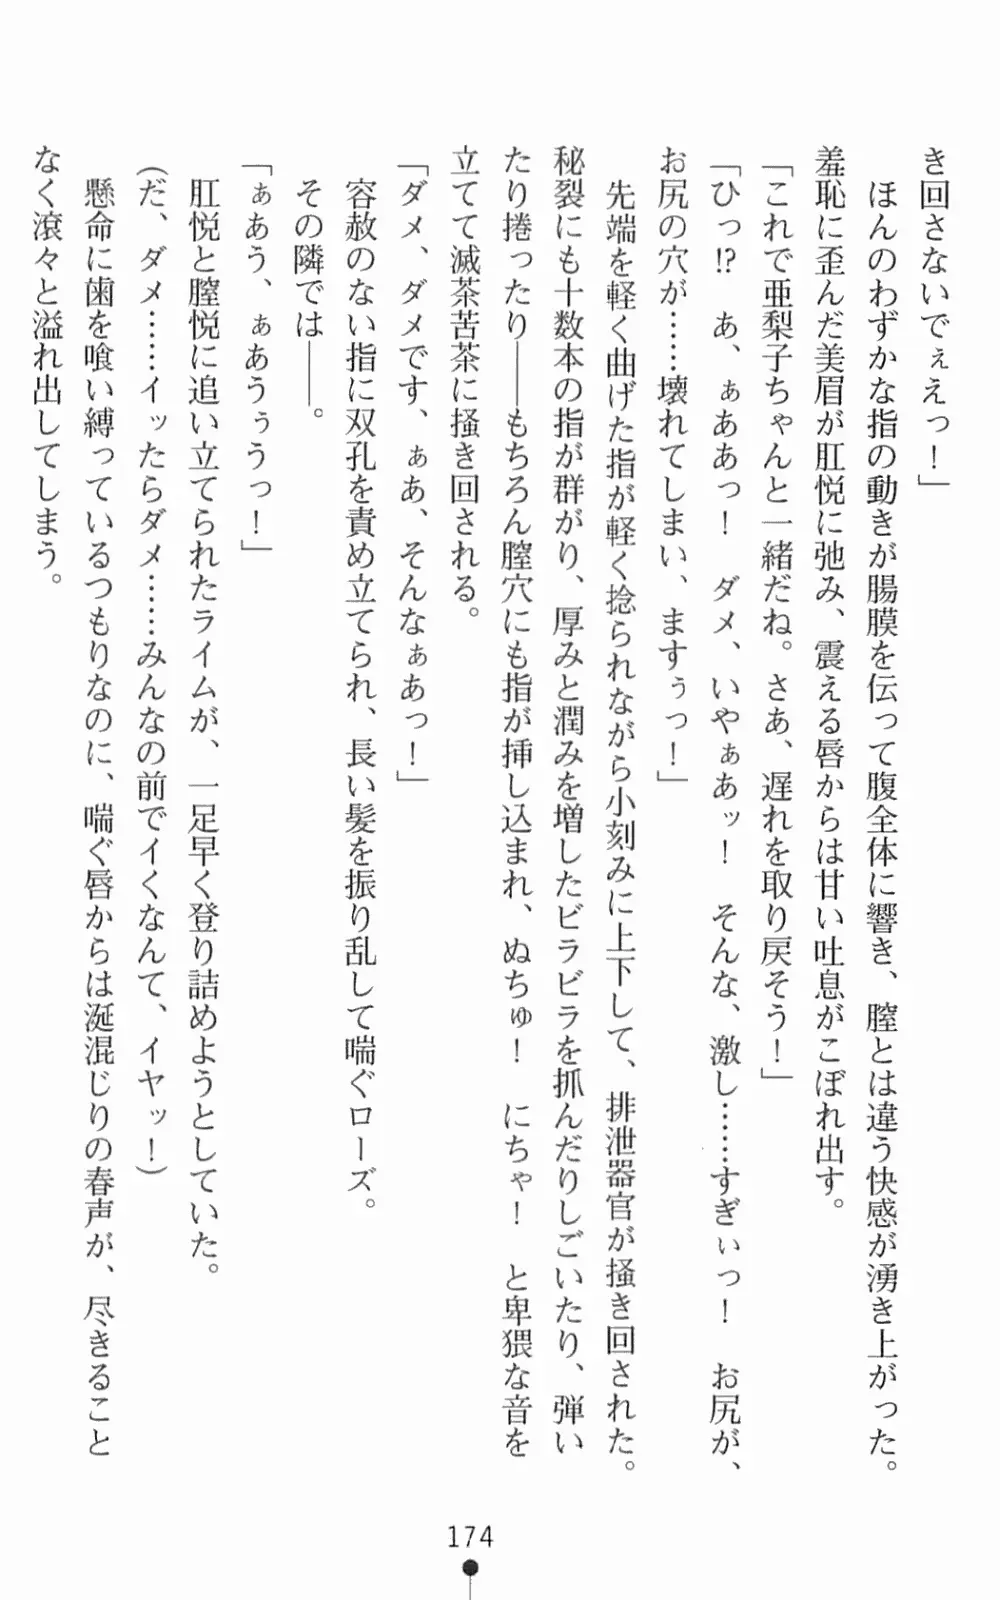 き回さないでぇえっ！」
ほんのわずかな指の動きが腸膜を伝って腹全体に響き、膣とは違う快感が湧き上がった。
羞恥に歪んだ美眉が肛悦に弛み、震える唇からは甘い吐息がこぼれ出す。
「これで亜梨子ちゃんと一緒だね。さあ、遅れを取り戻そう！」
「ひっ!?　あ、ぁああっ！　ダメ、いやぁあッ！　そんな、激し……すぎぃっ！　お尻が、
お尻の穴が……壊れてしまい、ますぅっ！」
先端を軽く曲げた指が軽く捻られながら小刻みに上下して、排泄器官が掻き回された。
秘裂にも十数本の指が群がり、厚みと潤みを増したビラビラを抓んだりしごいたり、弾い
たり捲ったり――もちろん膣穴にも指が挿し込まれ、ぬちゅ！　にちゃ！　と卑猥な音を
立てて滅茶苦茶に掻き回される。
「ダメ、ダメです、ぁあ、そんなぁあっ！」
容赦のない指に双孔を責め立てられ、長い髪を振り乱して喘ぐローズ。
その隣では――。
「ぁあう、ぁあうぅうっ！」
肛悦と膣悦に追い立てられたライムが、一足早く登り詰めようとしていた。
(だ、ダメ……イッたらダメ……みんなの前でイくなんて、イヤッ！)
懸命に歯を喰い縛っているつもりなのに、喘ぐ唇からは涎混じりの春声が、尽きること
なく滾々と溢れ出してしまう。
174